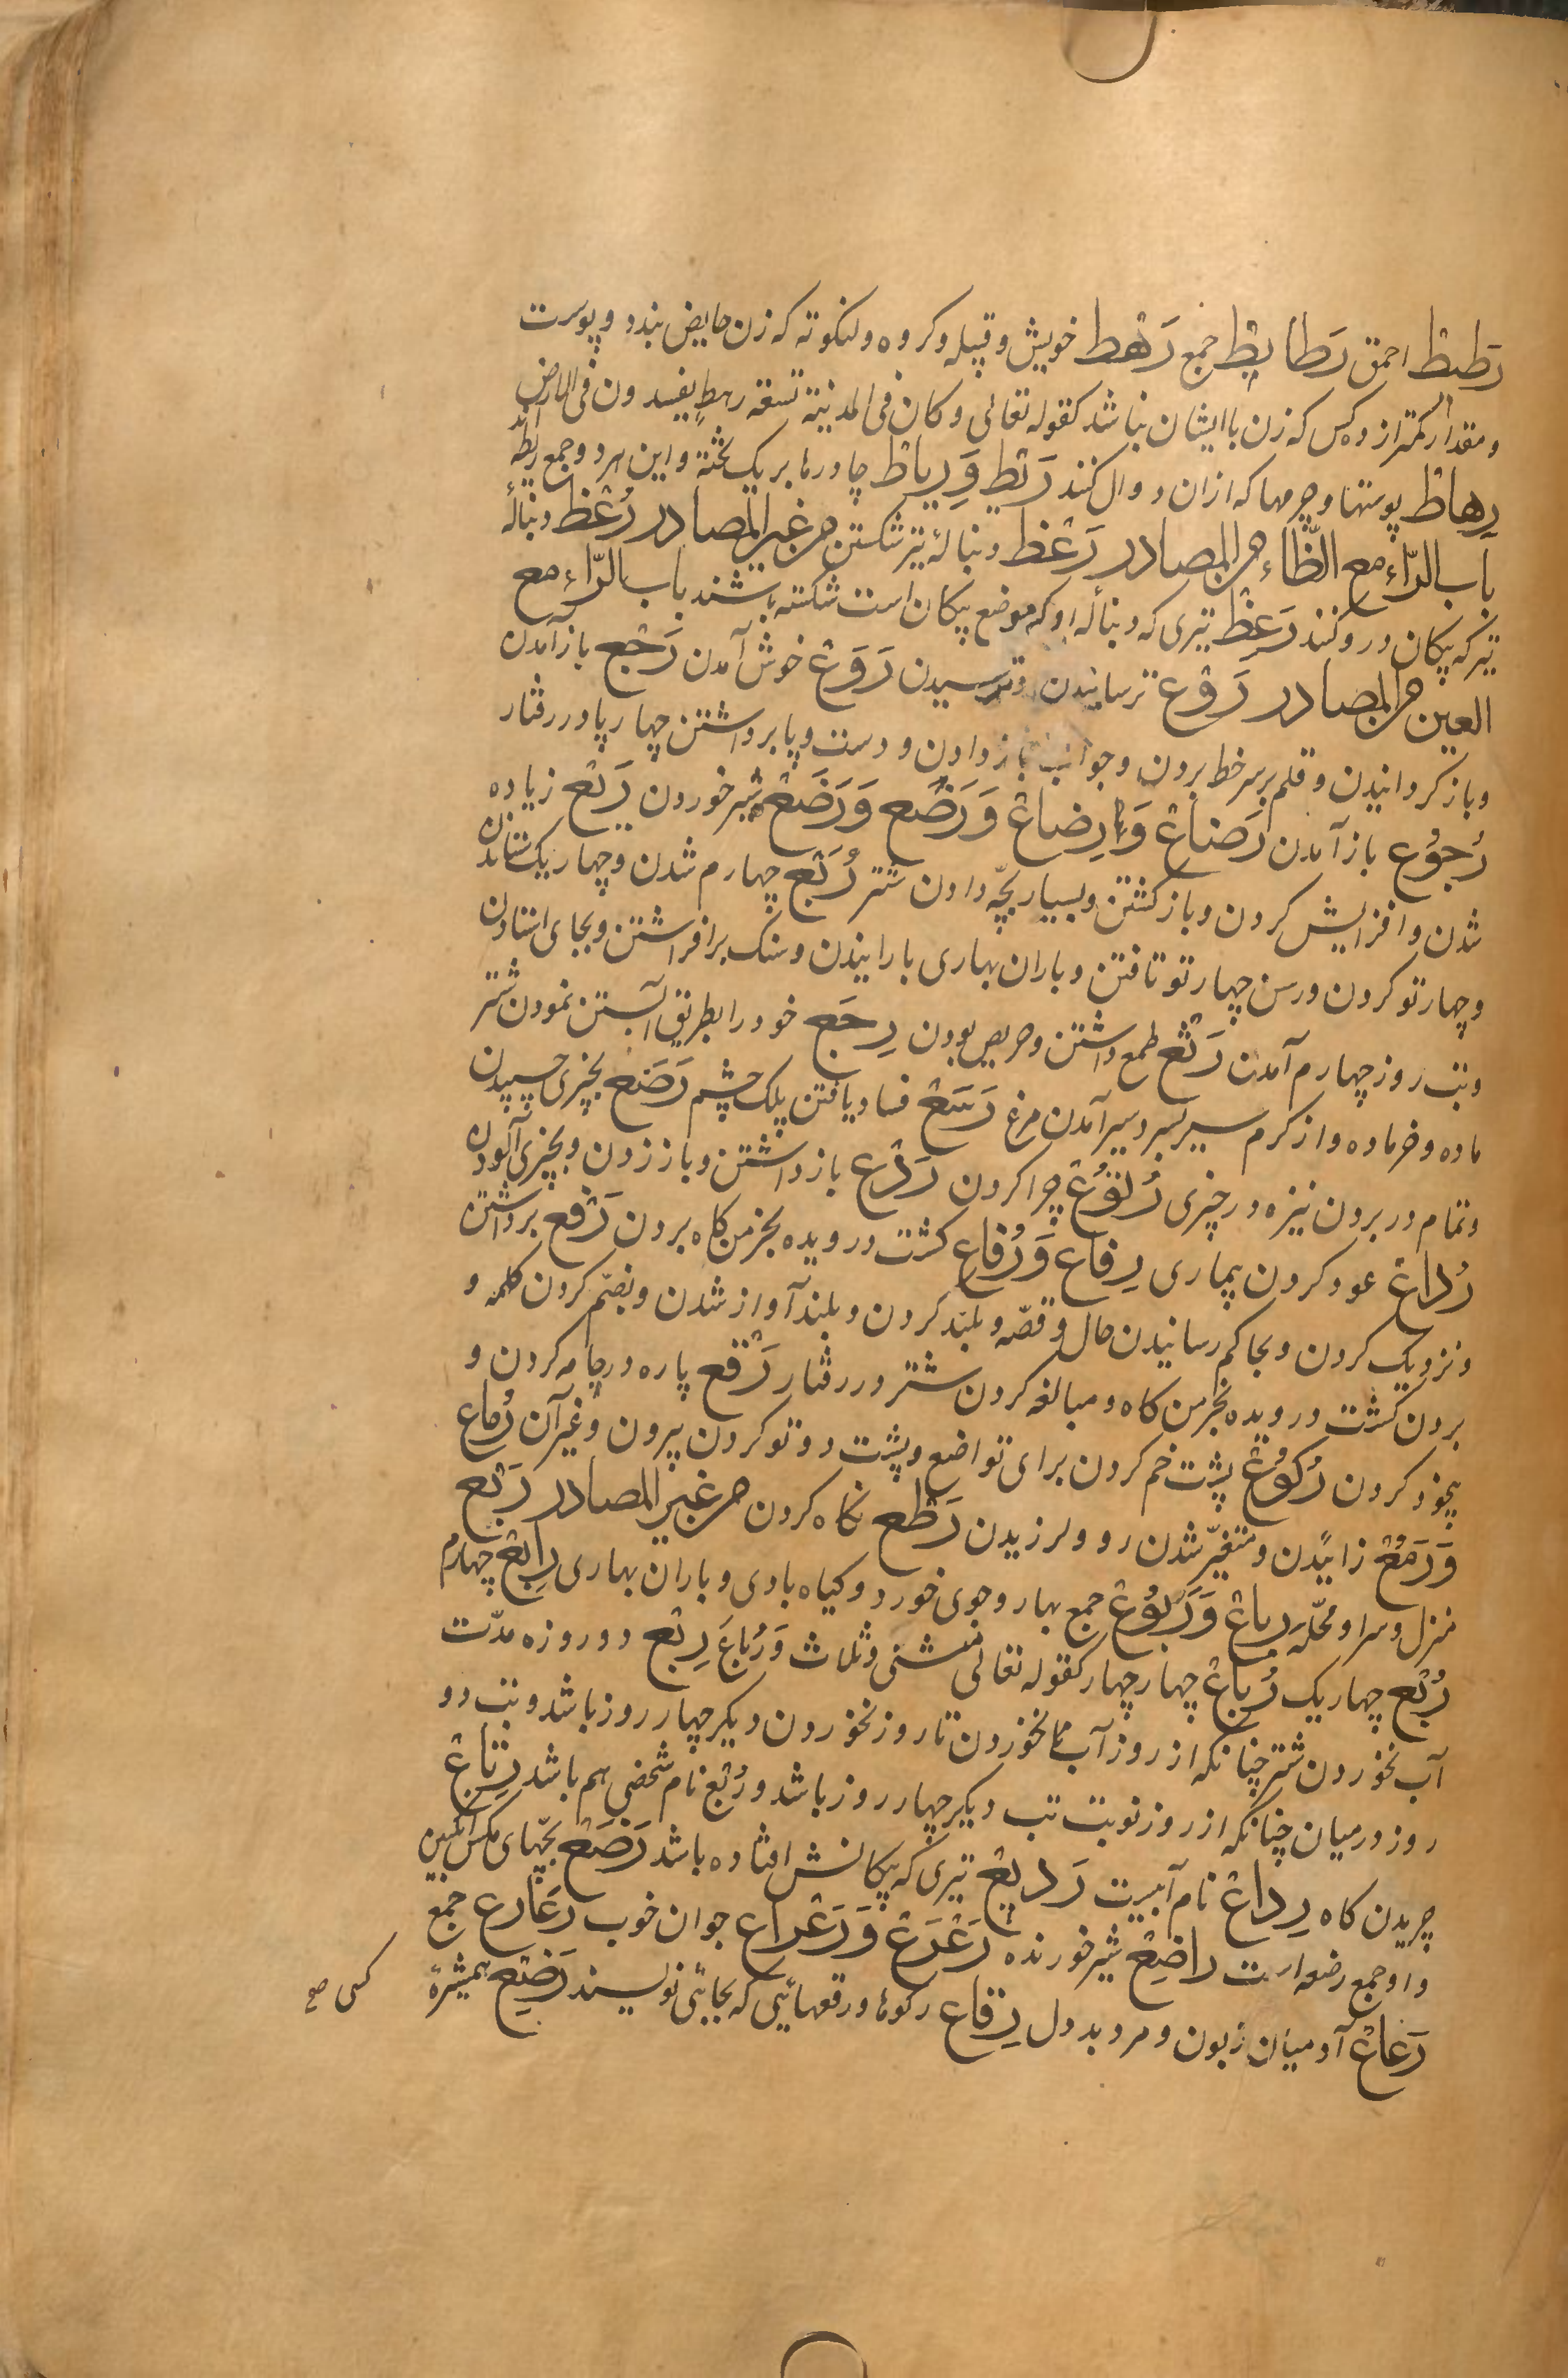 رَطیط احمق رَطایِط جمع رَهْط خویش و قبیله و کروه و لنکوته که زن حایض بندد و پوست
و مقدار کمتر از ده کس که زن با ایشان نباشد کقوله تعالی و کان فی المدینة تسعة رهطٍ یفسدون فی الارض
رِهاط پوستها و چرمها که ازان دوال کنند رَیْط وَ رِیاط چادرها بریک تخته و این هردو جمع ریطه اند
باب الرّاء مع الظّاء من المصادر رَعْظ دنبالهٔ تیر شکستن من غیر المصادر رُعْظ دنبالهٔ
تیر که پیکان درو کنند رَعِظ تیری که دنبالهٔ او که موضع پیکان است شکسته باشند باب الرّاء مع
العین من المصادر رَوْع ترسانیدن و ترسیدن رَوَع خوش آمدن رَجْع باز آمدن
و باز کردانیدن و قلم بر سر خط بردن و جواب باز دادن و دست و پا برداشتن چهارپا در رفتار
رُجُوع باز آمدن رَضاع وَ رِضاع وَ رَضَع وَ رَضْع شیر خوردن رَیْع زیاده
شدن و افزایش کردن و باز کشتن و بسیار بچّه دادن شتر رَبْع چهارم شدن و چهاریک ستاندن
و چهارتو کردن و رسن چهارتو تافتن و باران بهاری بارانیدن و سنک برافراشتن و بجای استادن
و تب روز چهارم آمدن رَثَع طمع داشتن و حریص بودن رِجَع خود را بطریق آبستن نمودن شتر
ماده و خر ماده و از کرم سیر بسردسیر آمدن مرغ رَسَع فساد یافتن پلک چشم رَصَع بچیزی چسپیدن
و تمام در بردن نیزه در چیزی رُتُوع چرا کردن رَدْع باز داشتن و باز زدن و بچیزی آلودن
رُداع عود کردن بیماری رِفاع وَ رُفاع کشت درویده بخرمن کاه بردن رَفْع برداشتن
و نزدیک کردن و بحاکم رسانیدن حال و قصّه و بلند کردن و بلند آواز شدن و بضمّ کردن کلمه و
بردن کشت درویده بخرمن کاه و مبالغه کردن شتر در رفتار رَقْع پاره در جامه کردن و
بیخود کردن رُکُوع پشت خم کردن برای تواضع و پشت دوتو کردن پیرون و غیر آن رُماع
وَ رَمْع زائیدن و متغیّر شدن رو و لرزیدن رَطْع نکاه کردن من غیر المصادر رَبْع
منزل و سرا و محلّه رِباع وَ رُبُوع جمع بهار و جوی خورد و کیاه بادی و باران بهاری رابِع چهارم
رُبْع چهاریک رُباع چهار چهار کقوله تعالی مثنی و ثلاث وَ رُباعَ رِبْع دو روزه مدّت
آب نخوردن شتر چنانکه از روز آب نخوردن تا روز نخوردن دیکر چهار روز باشد و تب دو
روز درمیان چنانکه از روز نوبت تب دیکر چهار روز باشد و رُبْع نام شخصی هم باشد رِتاع
چریدن کاه رِداع نام آبیست رَدیع تیری که پیکانش افتاده باشد رَضَع بچّهای مکس انکبین
و او جمع رضعه است راضِع شیر خورنده رَعْرَع وَ رَعْراع جوان خوب رَعارع جمع
رَعاع آدمیان زبون و مرد بددل رِقاع رکوها و رقعهائیی که بجائی نویسند رَضِیع همشیره